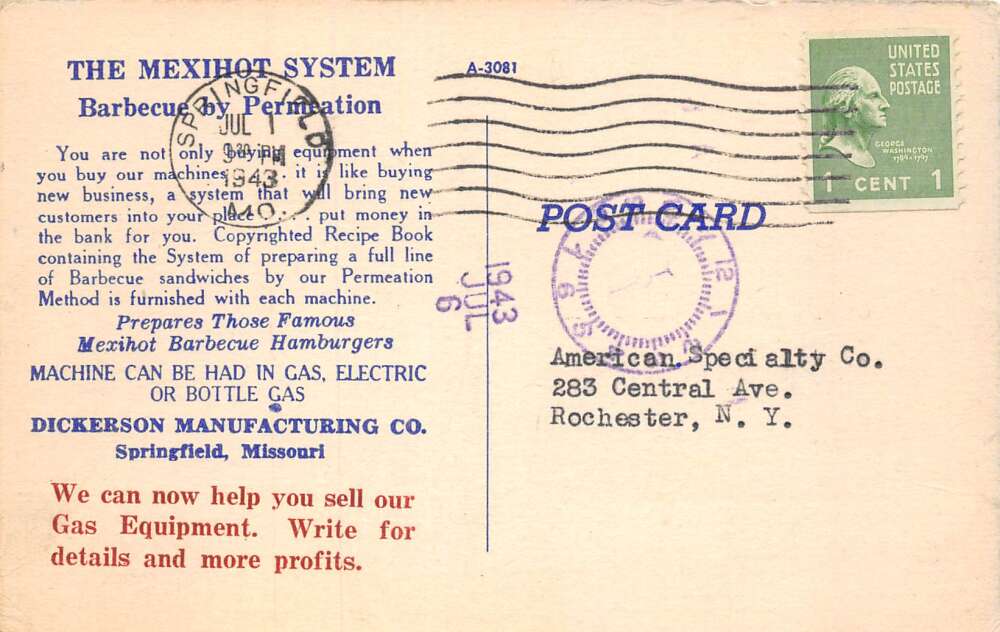 THE MEXIHOT SYSTEM
Barbecue by Permeation
You are not only buying equipment when
you buy our machines . . . it is like buying
new business, a system that will bring new
customers into your place . . . put money in
the bank for you. Copyrighted Recipe Book
containing the System of preparing a full line
of Barbecue sandwiches by our Permeation
Method is furnished with each machine.
Prepares Those Famous
Mexihot Barbecue Hamburgers
MACHINE CAN BE HAD IN GAS, ELECTRIC
OR BOTTLE GAS
DICKERSON MANUFACTURING CO.
Springfield, Missouri
We can now help you sell our
Gas Equipment. Write for
details and more profits.
SPRINGFIELD
JUL 1
PM
1943
MO.
A-3081
UNITED
STATES
POSTAGE
GEORGE
WASHINGTON
1789-1797
1 CENT 1
POST CARD
1943
JUL
6
12 1 2
5 6
American Specialty Co.
283 Central Ave.
Rochester, N. Y.